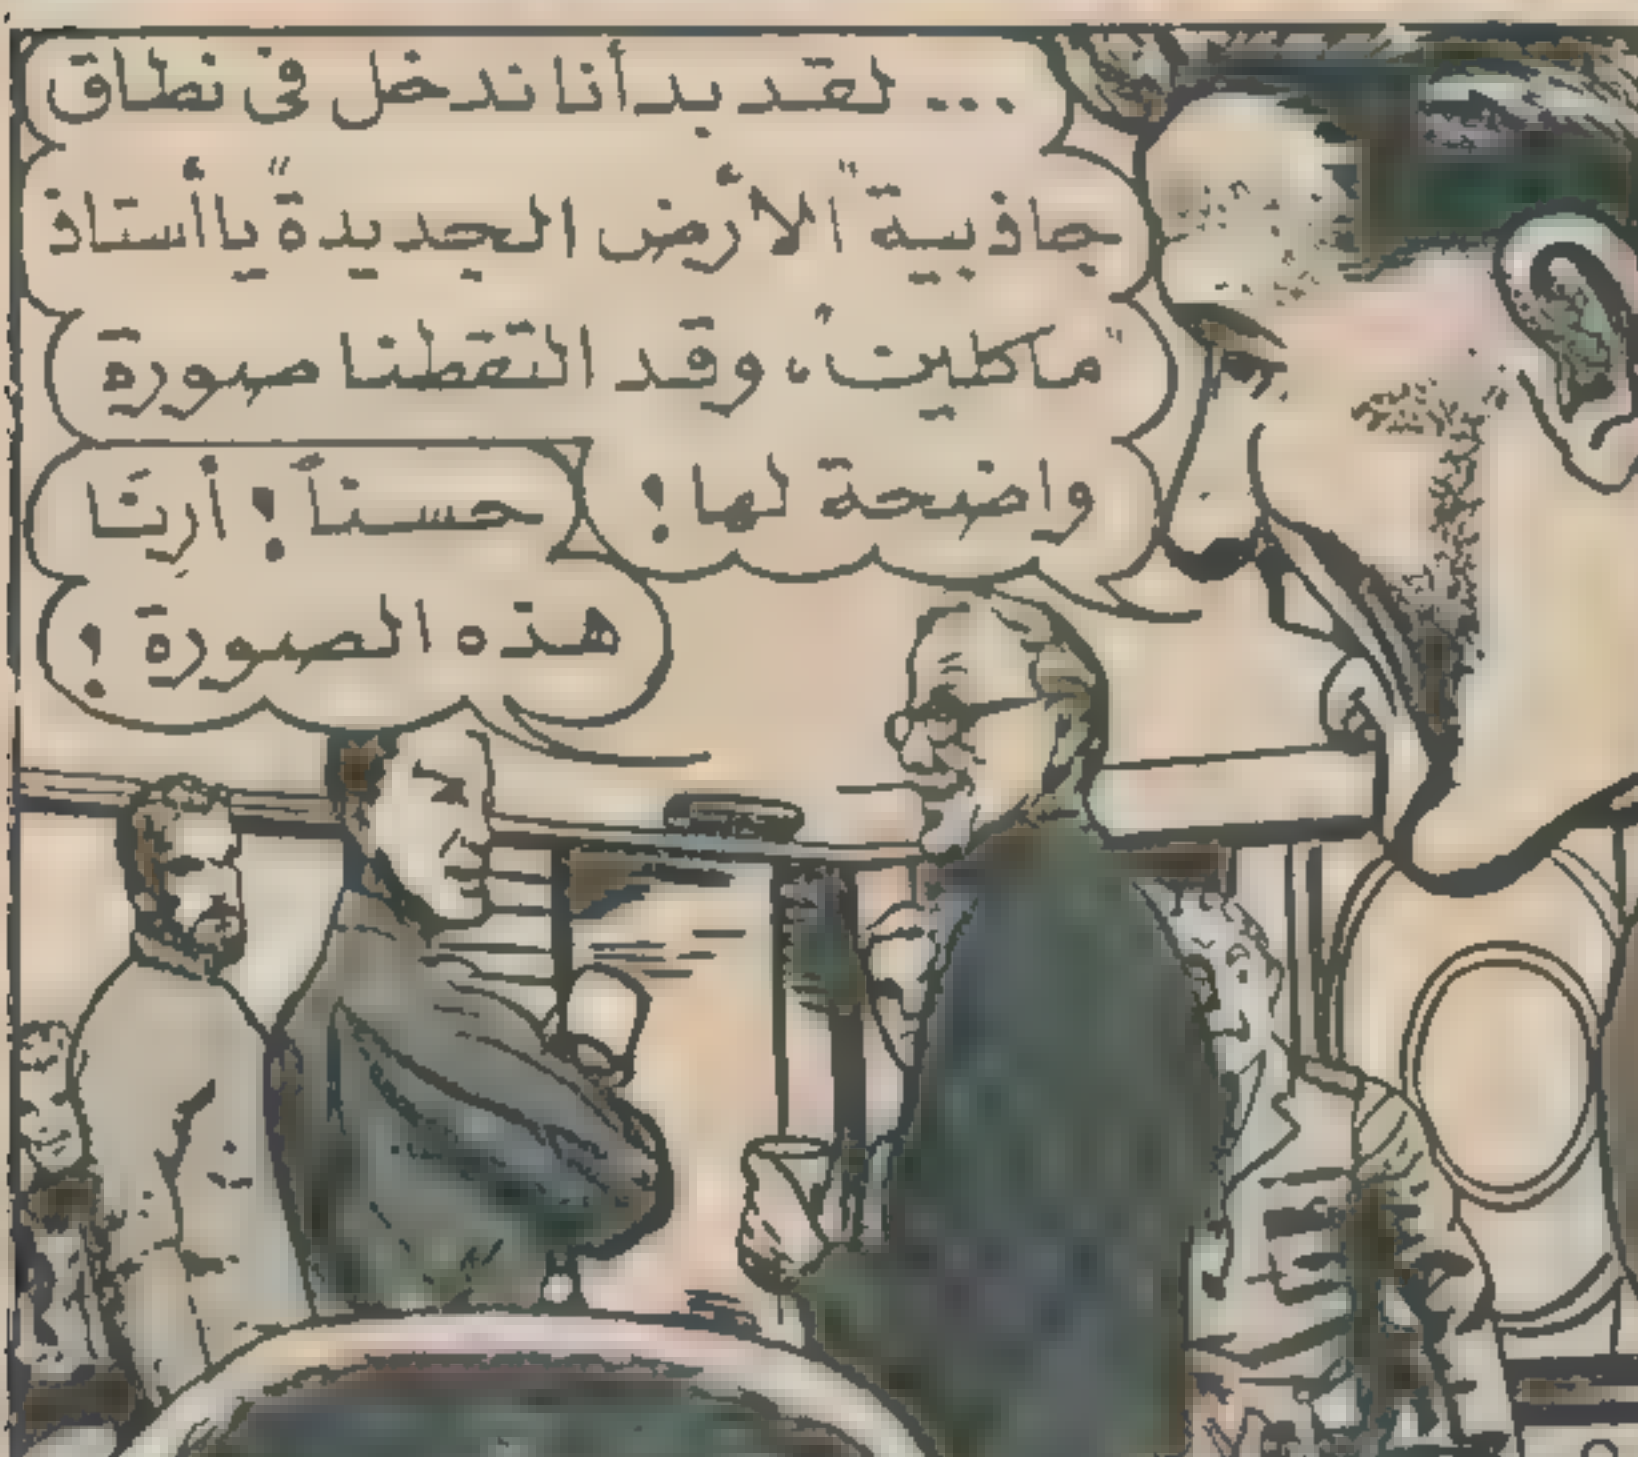 ... لقد بدأنا ندخل فى نطاق
جاذبية "الأرض الجديدة" ياأستاذ
"ماكليت"، وقد التقطنا صورة
واضحة لها!
حسناً! أرِنَا
هذه الصورة!